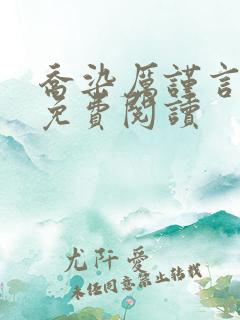 喬染厲謹言
免費閱讀
尤阡愛
未经同意禁止转载